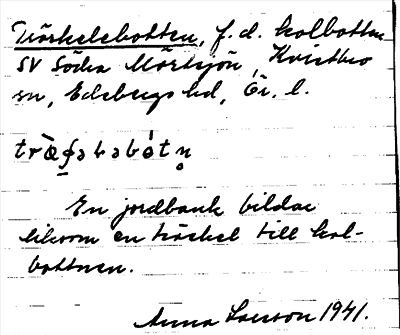 Tröskelsbotten, f.d. kolbotten
SV Södra Mörtsjön, Kvistbro
sn, Edsbergs hd, Ör. l.
En jordbank bildar
liksom en tröskel till kol-
bottnen.
Anna Larsson 1941.